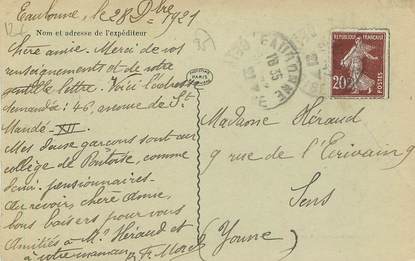 Eaubonne, le 28 Dbre 1921
Nom et adresse de l'expéditeur
Chère amie. Merci de vos
renseignements et de votre
gentille lettre. Voici l'adresse
demandée : 46, avenue de St
Mandé - XII
Mes deux garçons sont au
collège de Pontoise, comme
demi-pensionnaires.
Au revoir, chère amie,
bons baisers pour vous
Amitiés à Mr Héraud et
à votre maman
PARIS
EAUBONNE
18 35
20c
POSTES
Madame Héraud
9 rue de l'Ecrivain 9
Sens
(Yonne)